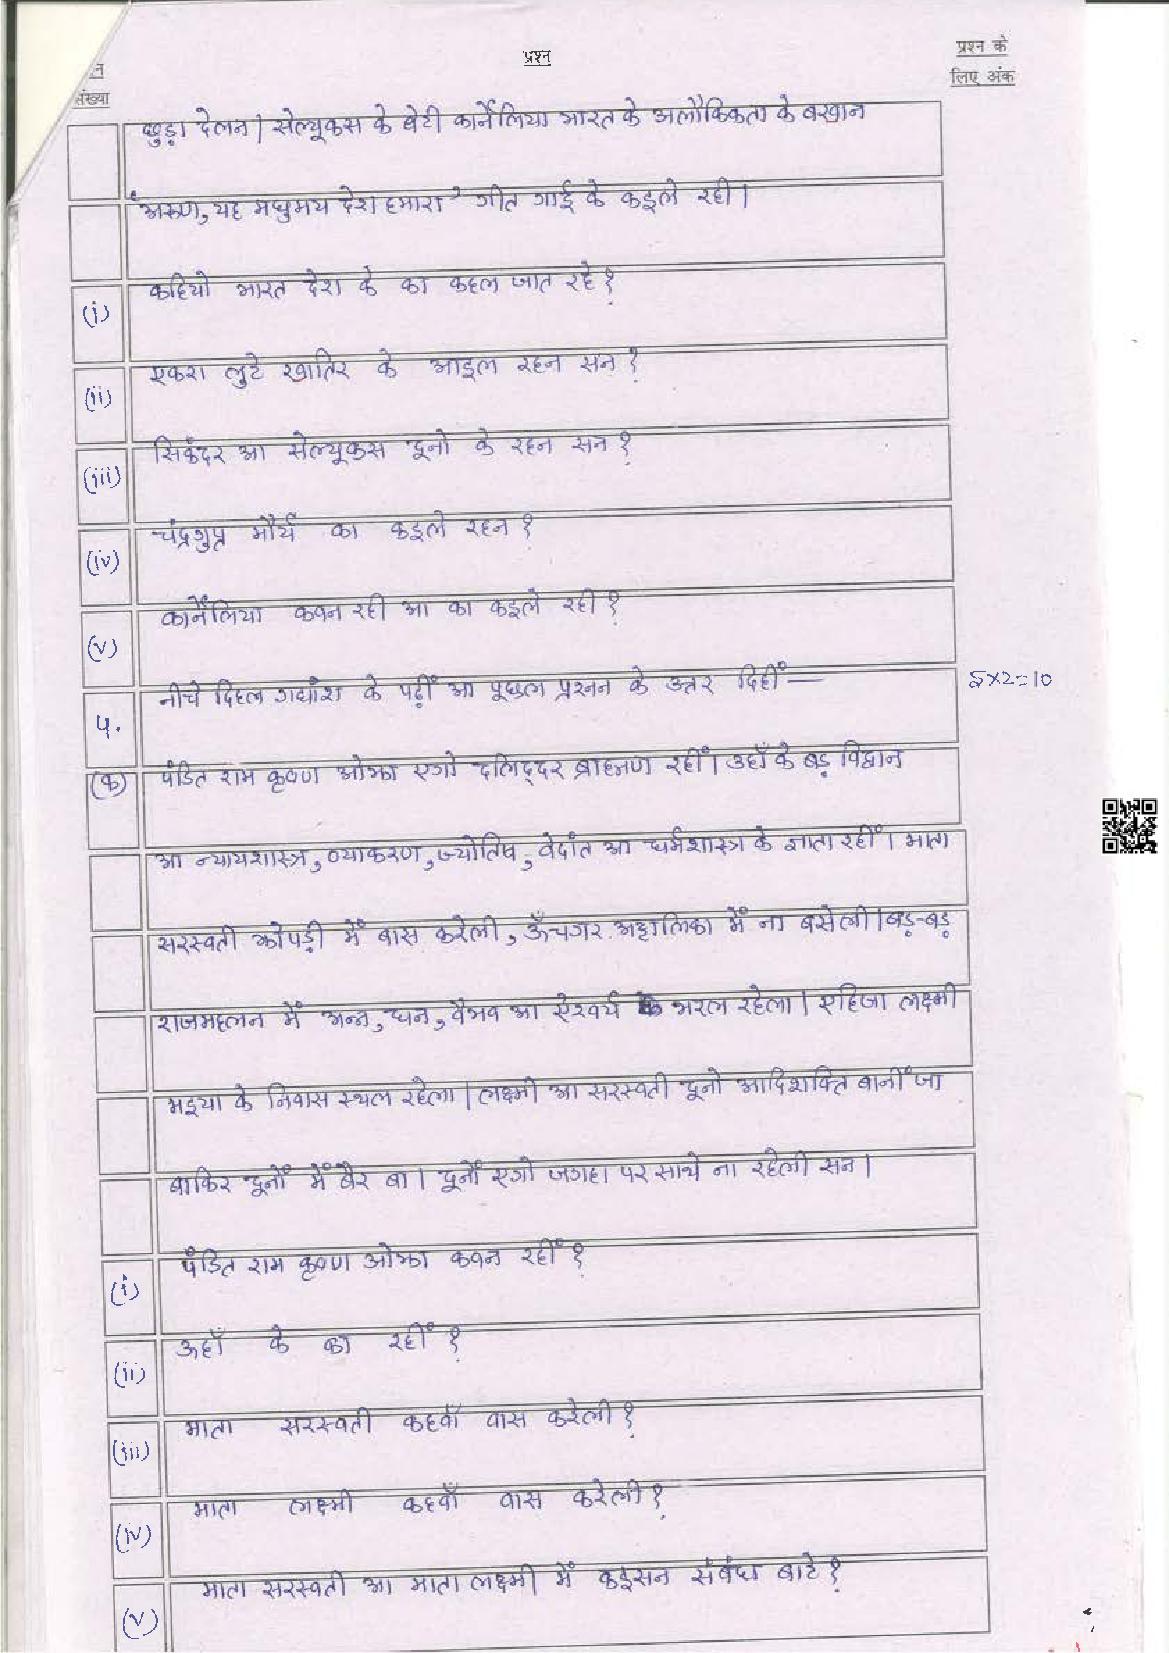 प्रश्न
प्रश्न के
लिए अंक
न
संख्या
छुड़ा देलन। सेल्यूकस के बेटी कार्नेलिया भारत के अलौकिकता के बखान
"अरुण, यह मधुमय देश हमारा" गीत गाई के कइले रही।
(i) कहियो भारत देश के का कहल जात रहे?
(ii) एकरा लुटे खातिर के आइल रहन सन?
(iii) सिकंदर आ सेल्यूकस दूनो के रहन सन?
(iv) चंद्रगुप्त मौर्य का कइले रहन?
(v) कार्नेलिया कवन रही आ का कइले रही?
५. नीचे दिहल गद्यांश के पढ़ीं आ पूछल प्रश्नन के उत्तर दिहीं— 5×2=10
(क) पंडित राम कृष्ण ओझा एगो दलिद्दर ब्राह्मण रहीं। उहाँ के बड़ विद्वान
आ न्यायशास्त्र, व्याकरण, ज्योतिष, वेदांत आ धर्मशास्त्र के ज्ञाता रहीं। माता
सरस्वती झोपड़ी में बास करेली, ऊँचगर अट्टालिका में ना बसेली। बड़-बड़
राजमहलन में अन्न, धन, वैभव आ ऐश्वर्य भरल रहेला। एहिजा लक्ष्मी
मइया के निवास स्थल रहेला। लक्ष्मी आ सरस्वती दूनो आदिशक्ति बानीं जा
बाकिर दूनों में बैर बा। दूनों एगो जगहा पर साथे ना रहेली सन।
(i) पंडित राम कृष्ण ओझा कवन रहीं?
(ii) ऊहाँ के का रहीं?
(iii) माता सरस्वती कहवाँ वास करेली?
(iv) माता लक्ष्मी कहवाँ वास करेली?
(v) माता सरस्वती आ माता लक्ष्मी में कइसन संबंध बाटे?